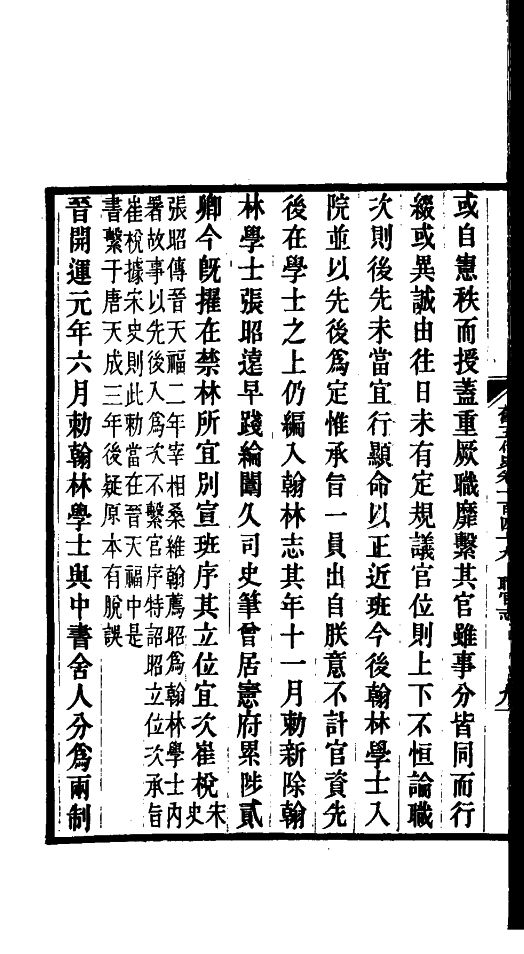 或自憲秩而授蓋重厥職靡繫其官雖事分皆同而行
綴或異誠由往日未有定規議官位則上下不恒論職
次則後先未當宜行顯命以正近班今後翰林學士入
院並以先後爲定惟承旨一員出自朕意不計官資先
後在學士之上仍編入翰林志其年十一月勅新除翰
林學士張昭遠早踐綸闈久司史筆曾居憲府累陟貳
卿今旣擢在禁林所宜別宣班序其立位宜次崔梲宋史
張昭傳晉天福二年宰相桑維翰薦昭爲翰林學士內
署故事以先後入爲次不繫官序特詔昭立位次承旨
崔梲據宋史則此勅當在晉天福中是
書繫于唐天成三年後疑原本有脫誤
晉開運元年六月勅翰林學士與中書舍人分爲兩制